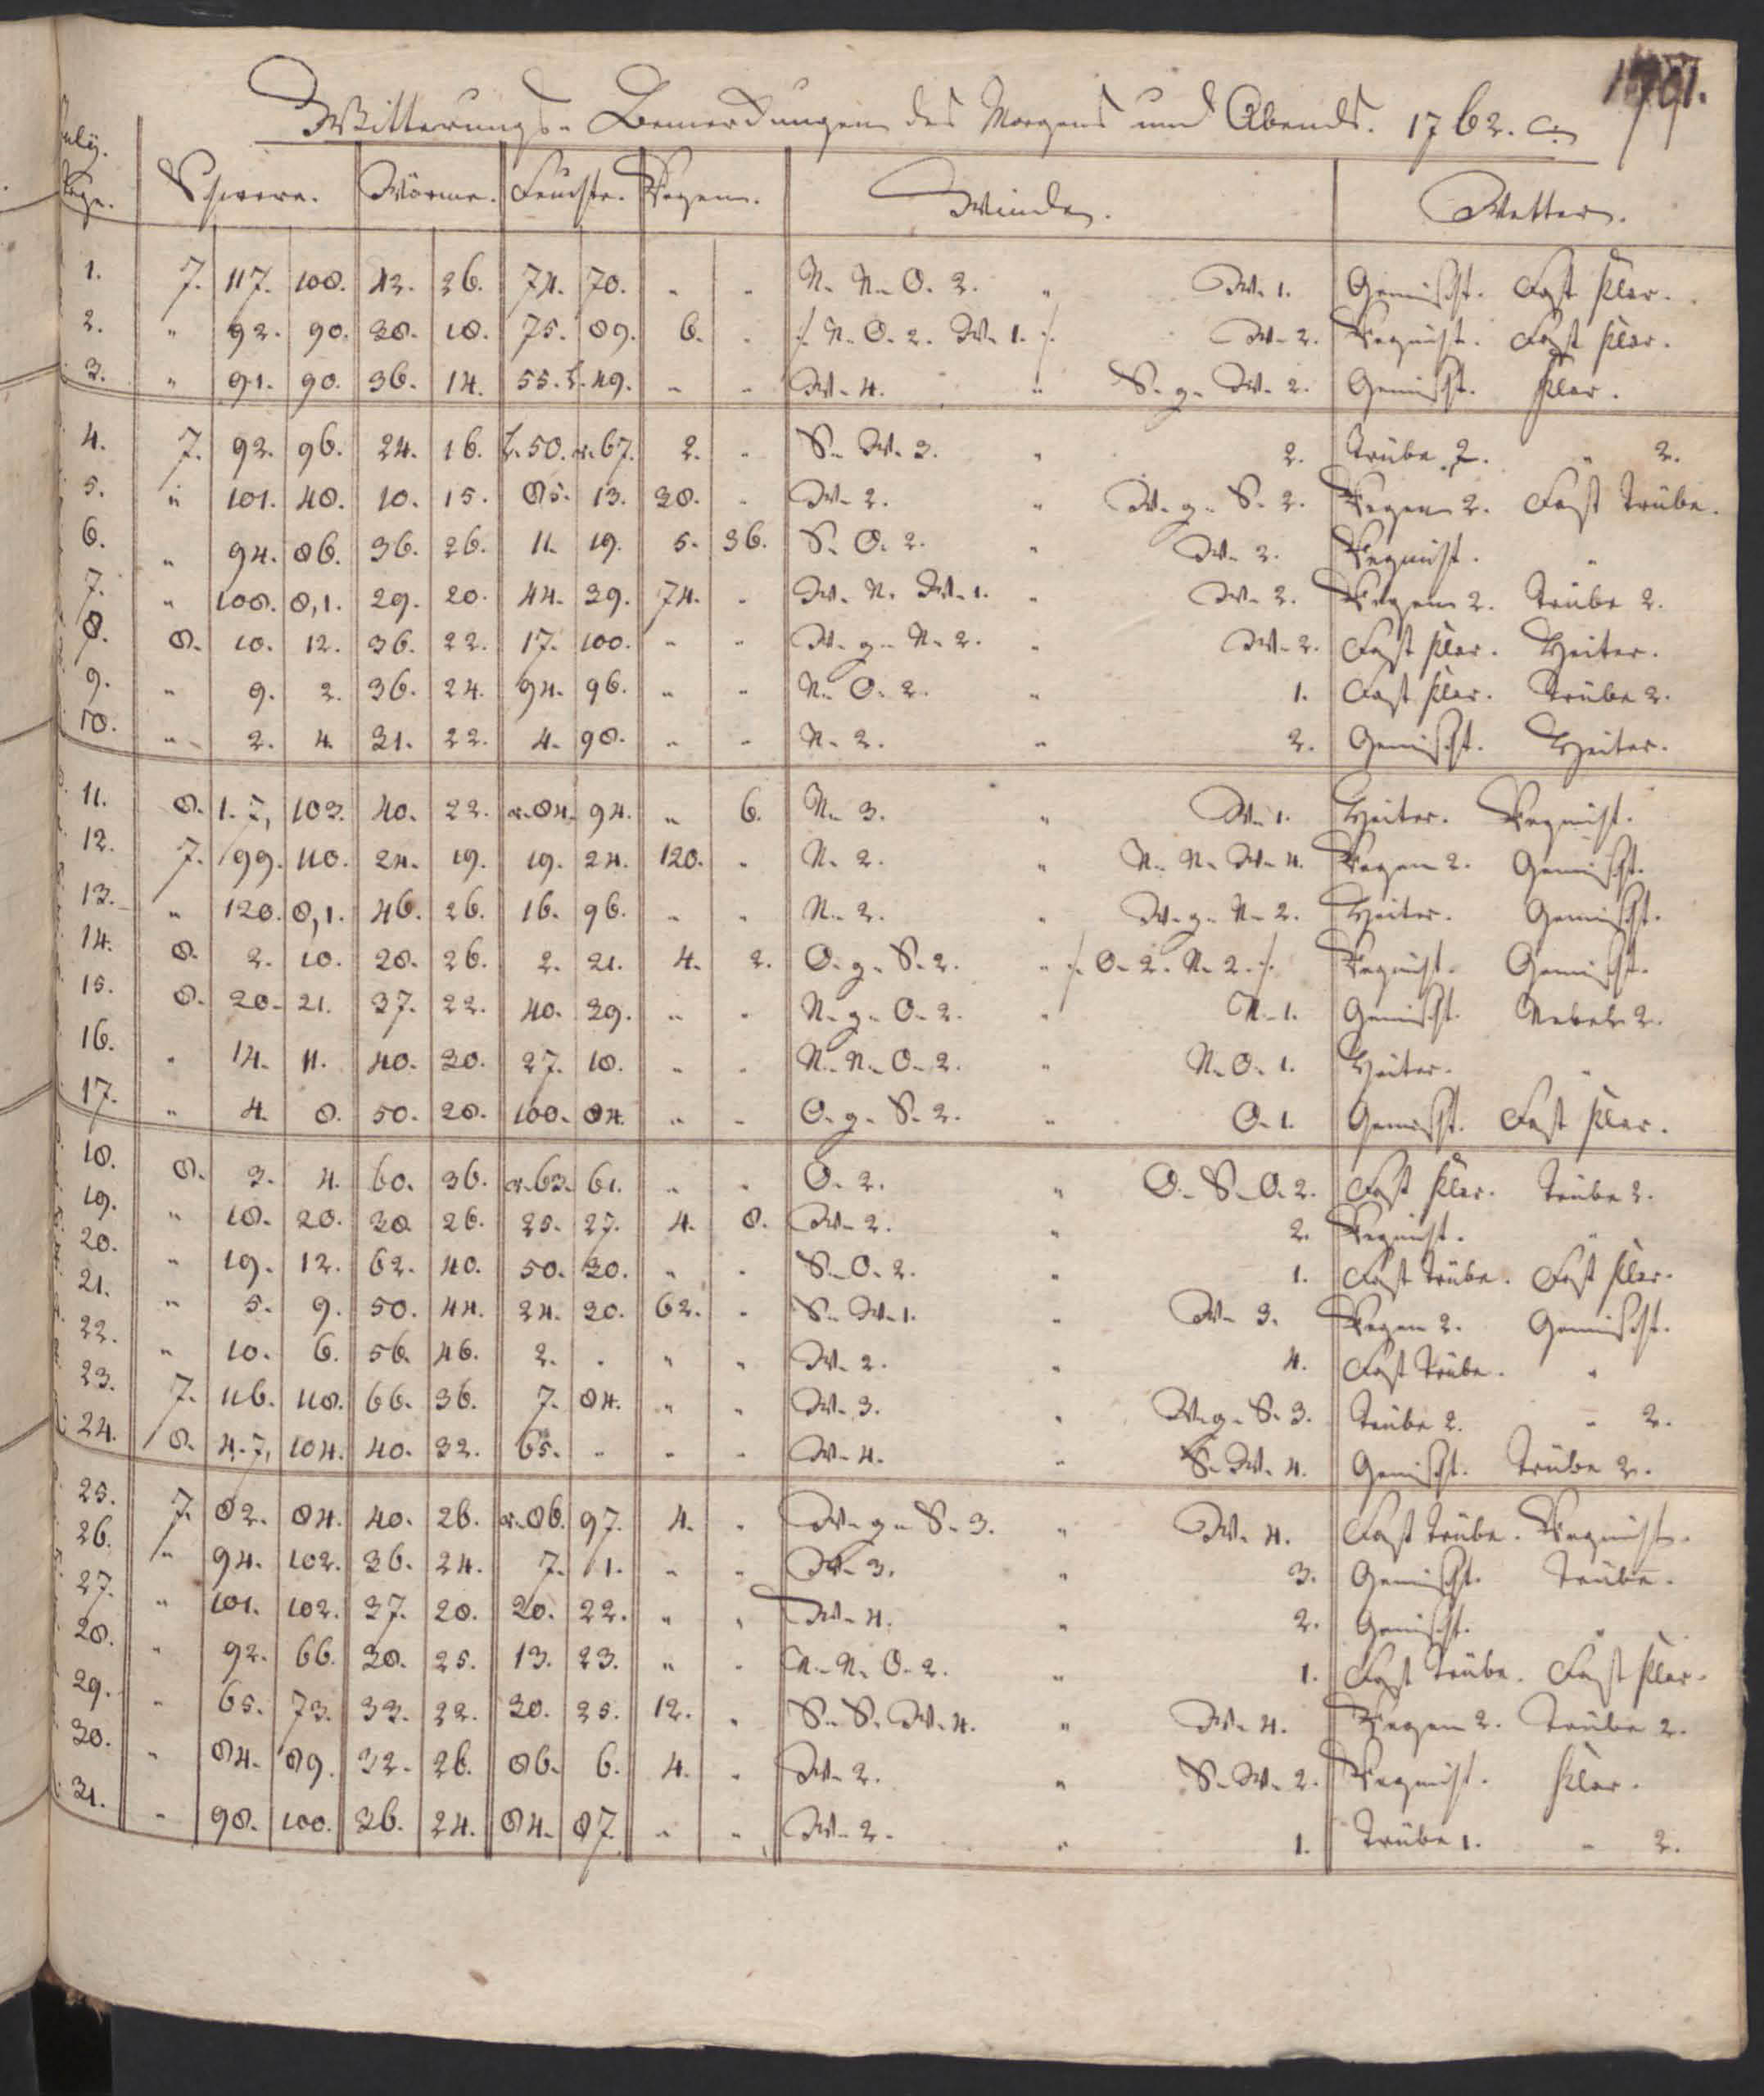 Witterungs- Bemerckungen des Morgens und Abends. 1762. c.
July.
Tage. Schwere. Wärme. Feuchte. Regen. Winde. Wetter.
1. 7. 117. 108. 42. 26. 74. 70. " " N. N. O. 2. " W. 1. Gemischt. Fast klar.
2. " 92. 90. 38. 18. 75. 89. 6. " /. N. O. 2. W. 1. /. W. 2. Regnicht. Fast klar.
3. " 91. 90. 36. 14. 55. 49. " " W. 4. " S. g. W. 2. Gemischt. klar.
4. 7. 92. 96. 24. 16. 50. 67. 2. " S. W. 3. " 2. Trübe 2. " 2.
5. " 101. 48. 10. 15. 85. 13. 38. " W. 2. " W. g. S. 2. Regen 2. Fast trübe.
6. " 94. 86. 36. 26. 11. 19. 5. 36. S. O. 2. " W. 2. Regnicht. "
7. " 108. 8,1. 29. 20. 44. 39. 74. " W. N. W. 1. " W. 2. Regen 2. Trübe 2.
8. 8. 10. 12. 36. 22. 17. 100. " " W. g. N. 2. " W. 2. Fast klar. Heiter.
9. " 9. 2. 36. 24. 94. 96. " " N. O. 2. " 1. Fast klar. Trübe 2.
10. " 2. 4. 31. 22. 4. 98. " " N. 2. " 2. Gemischt. Heiter.
11. 8. 1. 7, 103. 40. 22. 84. 94. " 6. N. 3. " W. 1. Heiter. Regnicht.
12. 7. 99. 110. 24. 19. 19. 24. 120. " N. 2. " N. N. W. 4. Regen 2. Gemischt.
13. " 120. 8,1. 46. 26. 16. 96. " " N. 2. " W. g. N. 2. Heiter. Gemischt.
14. 8. 2. 10. 28. 26. 2. 21. 4. 2. O. g. S. 2. " /. O. 2. N. 2. /. Regnicht. Gemischt.
15. 8. 20. 21. 37. 22. 40. 39. " " N. g. O. 2. " N. 1. Gemischt. Nebel 2.
16. " 14. 11. 40. 30. 27. 18. " " N. N. O. 2. " N. O. 1. Heiter. "
17. " 4. 8. 50. 28. 100. 84. " " O. g. S. 2. " O. 1. Gemischt. Fast klar.
18. 8. 3. 4. 60. 36. 63. 61. " " O. 2. " O. S. O. 2. Fast klar. Trübe 2.
19. " 18. 20. 38. 26. 25. 27. 4. 8. W. 2. " 2. Regnicht. "
20. " 19. 12. 62. 40. 50. 30. " " S. O. 2. " 1. Fast trübe. Fast klar.
21. " 5. 9. 50. 44. 24. 20. 62. " S. W. 1. " W. 3. Regen 2. Gemischt.
22. " 10. 6. 56. 46. 2. " " " W. 2. " 4. Fast trübe. "
23. 7. 116. 118. 66. 36. 7. 84. " " W. 3. " W. g. S. 3. Trübe 2. " 2.
24. 8. 4. 7, 104. 40. 32. 65. " " " W. 4. " S. W. 4. Gemischt. Trübe 2.
25. 7. 82. 84. 40. 26. 86. 97. 4. " W. g. S. 3. " W. 4. Fast trübe. Regnicht.
26. " 94. 102. 36. 24. 7. 1. " " W. 3. " 3. Gemischt. Trübe.
27. " 101. 102. 37. 20. 20. 22. " " W. 4. " 2. Gemischt. "
28. " 92. 66. 38. 25. 13. 23. " " N. N. O. 2. " 1. Fast trübe. Fast klar.
29. " 65. 73. 33. 22. 30. 25. 12. " S. S. W. 4. " W. 4. Regen 2. Trübe 2.
30. " 84. 89. 32. 26. 86. 6. 4. " W. 2. " S. W. 2. Regnicht. klar.
31. " 98. 100. 36. 24. 84. 87. " " W. 2. " 1. Trübe 1. " 2.